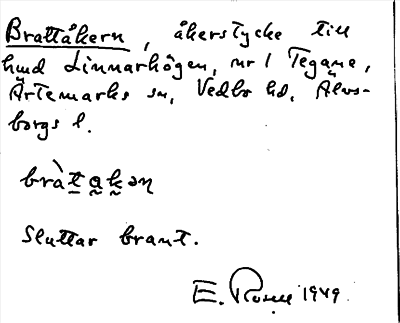 Brattåkern, åkerstycke till
hmd Linnarhögen, nr 1 Tegane,
Ärtemarks sn, Vedbo hd, Älvs-
borgs l.
bràtakən
Sluttar brant.
E. Rosell 1949.